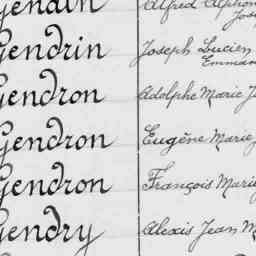 Gendrin Alfred Alphon
Jose
Gendrin Joseph Lucien
Emman
Gendron Adolphe Marie J
Gendron Eugène Marie
Gendron François Marie
Gendry Alexis Jean M